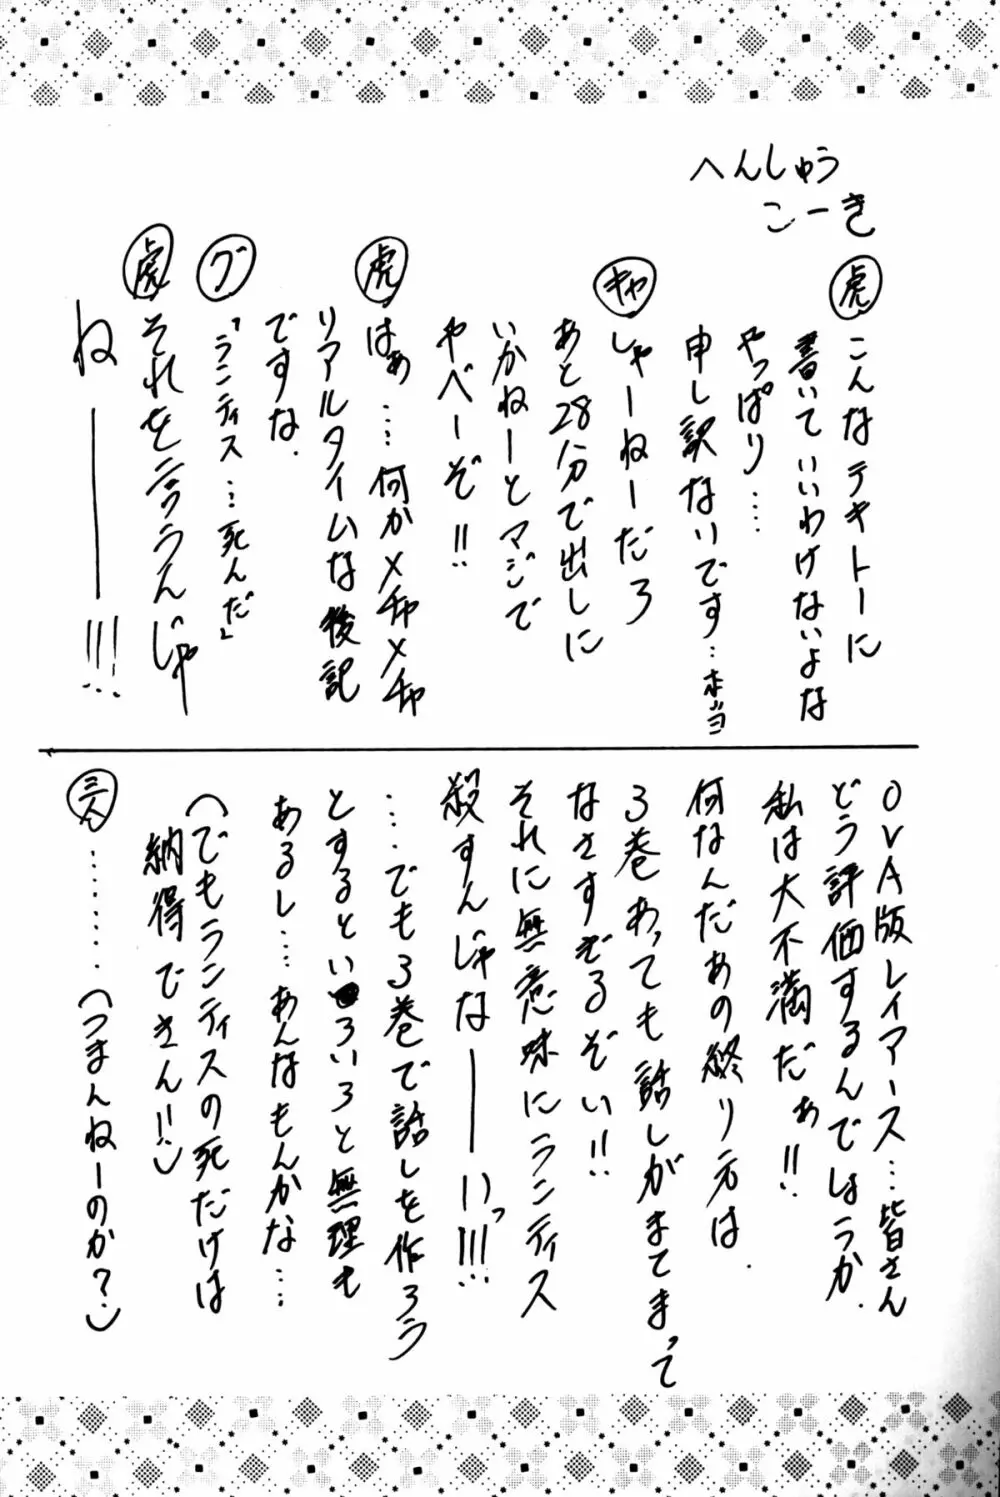 へんしゅう
こーき
虎 こんなテキトーに
書いていいわけないよな
やっぱり……
申し訳ないです…本当
キャ しゃーねーだろ
あと28分で出しに
いかねーとマジで
ヤベーぞ!!
虎 はぁ……何かメチャメチャ
リアルタイムな後記
ですな.
グ 「ランティス…死んだ」
虎 それを言うんじゃ
ね———!!!
OVA版レイアース…皆さん
どう評価するんでしょうか.
私は大不満だぁ!!
何なんだあの終り方は.
3巻あっても話しがまてまって
なさすぎるぞい!!
それに無意味にランティス
殺すんじゃな——いっ!!!
…でも3巻で話しを作ろう
とするといろいろと無理も
あるし…あんなもんかな…
(でもランティスの死だけは
納得できん!!)
三人 ………(つまんねーのか?)